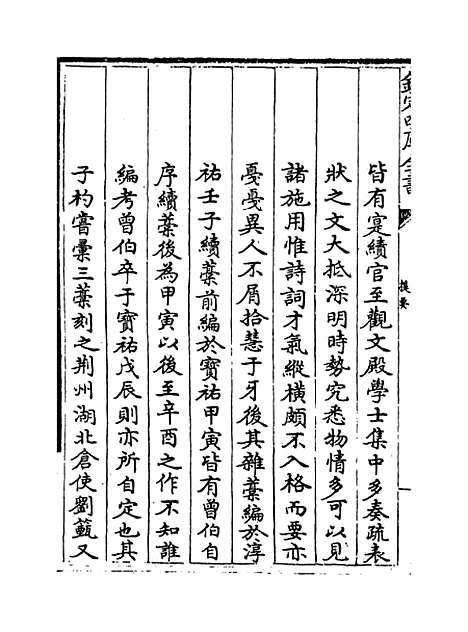 欽定四庫全書
提要
皆有寔績官至觀文殿學士集中多奏疏表
狀之文大抵深明時勢究悉物情多可以見
諸施用惟詩詞才氣縱横頗不入格而要亦
戞戞異人不屑拾慧于牙後其雜藁編於淳
祐壬子續藁前編於寳祐甲寅皆有曾伯自
序續藁後為甲寅以後至辛酉之作不知誰
編考曾伯卒于寳祐戊辰則亦所自定也其
子杓嘗彚三藁刻之荆州湖北倉使劉籈又